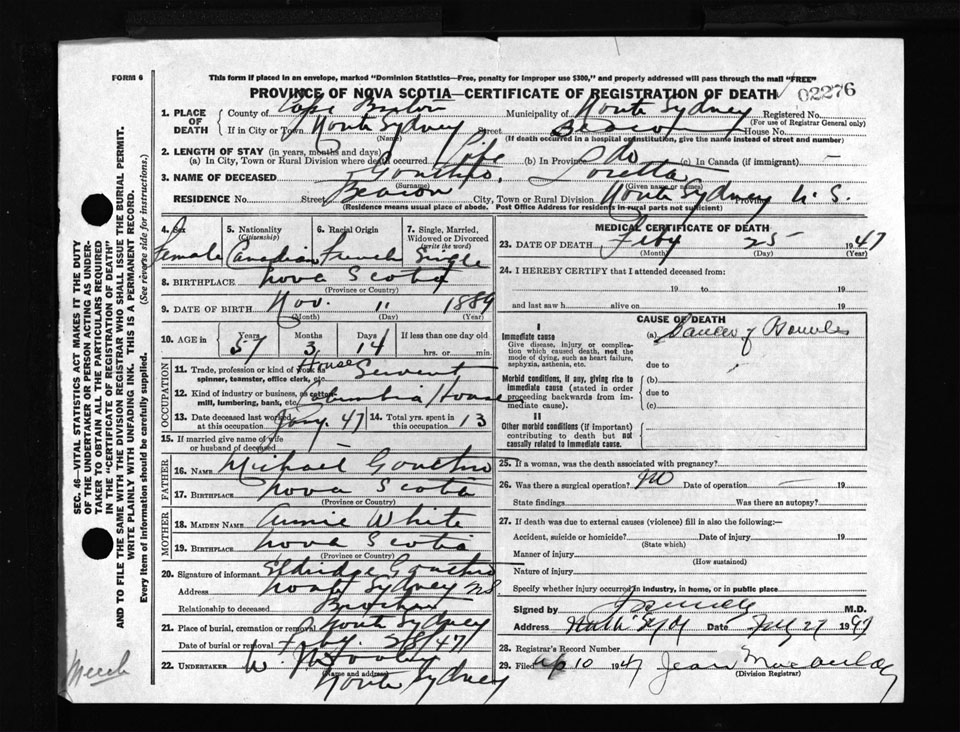 FORM 6
This form if placed in an envelope, marked "Dominion Statistics—Free, penalty for improper use $300," and properly addressed will pass through the mail "FREE"
PROVINCE OF NOVA SCOTIA—CERTIFICATE OF REGISTRATION OF DEATH
02276
1. PLACE OF DEATH
County of Cape Breton Municipality of North Sydney Registered No.
(For use of Registrar General only)
If in City or Town North Sydney Street Beacon House No.
(Name) (If death occurred in a hospital or institution, give the name instead of street and number)
2. LENGTH OF STAY (in years, months and days)
(a) In City, Town or Rural Division where death occurred Life (b) In Province do (c) In Canada (if immigrant) —
3. NAME OF DECEASED Gouthro, Loretta
(Surname) (Given name or names)
RESIDENCE No. Street Beacon City, Town or Rural Division North Sydney Province N. S.
(Residence means usual place of abode. Post Office Address for residents in rural parts not sufficient)
4. Sex Female
5. Nationality (Citizenship) Canadian
6. Racial Origin French
7. Single, Married, Widowed or Divorced (write the word) Single
8. BIRTHPLACE Nova Scotia
(Province or Country)
9. DATE OF BIRTH Nov. 11 1889
(Month) (Day) (Year)
10. AGE in Years 57 Months 3 Days 14 If less than one day old
hrs. or min.
OCCUPATION
11. Trade, profession or kind of work as spinner, teamster, office clerk, etc. House Servant
12. Kind of industry or business, as cotton mill, lumbering, bank, etc. Columbia House
13. Date deceased last worked at this occupation Jany. 47
14. Total yrs. spent in this occupation 13
15. If married give name of wife or husband of deceased
FATHER
16. NAME Michael Gouthro
17. BIRTHPLACE Nova Scotia
(Province or Country)
MOTHER
18. MAIDEN NAME Annie White
19. BIRTHPLACE Nova Scotia
(Province or Country)
20. Signature of informant Eldridge Gouthro
Address North Sydney NS
Relationship to deceased Brother
21. Place of burial, cremation or removal North Sydney
Date of burial or removal 28/47
22. UNDERTAKER W.
(Name and address)
North Sydney
MEDICAL CERTIFICATE OF DEATH
23. DATE OF DEATH Feby 25 1947
(Month) (Day) (Year)
24. I HEREBY CERTIFY that I attended deceased from:
19 to 19
and last saw h alive on 19
CAUSE OF DEATH
I
Immediate cause
Give disease, injury or complication which caused death, not the mode of dying, such as heart failure, asphyxia, asthenia, etc.
(a) Cancer of Bowels
due to
Morbid conditions, if any, giving rise to immediate cause (stated in order proceeding backwards from immediate cause).
(b)
due to
(c)
II
Other morbid conditions (if important) contributing to death but not causally related to immediate cause.
25. If a woman, was the death associated with pregnancy?
26. Was there a surgical operation? No Date of operation — 19
State findings Was there an autopsy?
27. If death was due to external causes (violence) fill in also the following:—
Accident, suicide or homicide? Date of injury 19
(State which)
Manner of injury
(How sustained)
Nature of injury
Specify whether injury occurred in industry, in home, or in public place
Signed by M.D.
Address North Syd Date Feby 27 1947
28. Registrar's Record Number
29. Filed Ap 10 1947 Jean
(Division Registrar)
SEC. 46—VITAL STATISTICS ACT MAKES IT THE DUTY
OF THE UNDERTAKER OR PERSON ACTING AS UNDER-
TAKER TO OBTAIN ALL THE PARTICULARS REQUIRED
IN THE "CERTIFICATE OF REGISTRATION OF DEATH"
AND TO FILE THE SAME WITH THE DIVISION REGISTRAR WHO SHALL ISSUE THE BURIAL PERMIT.
WRITE PLAINLY WITH UNFADING INK. THIS IS A PERMANENT RECORD.
Every item of information should be carefully supplied. (See reverse side for instructions.)